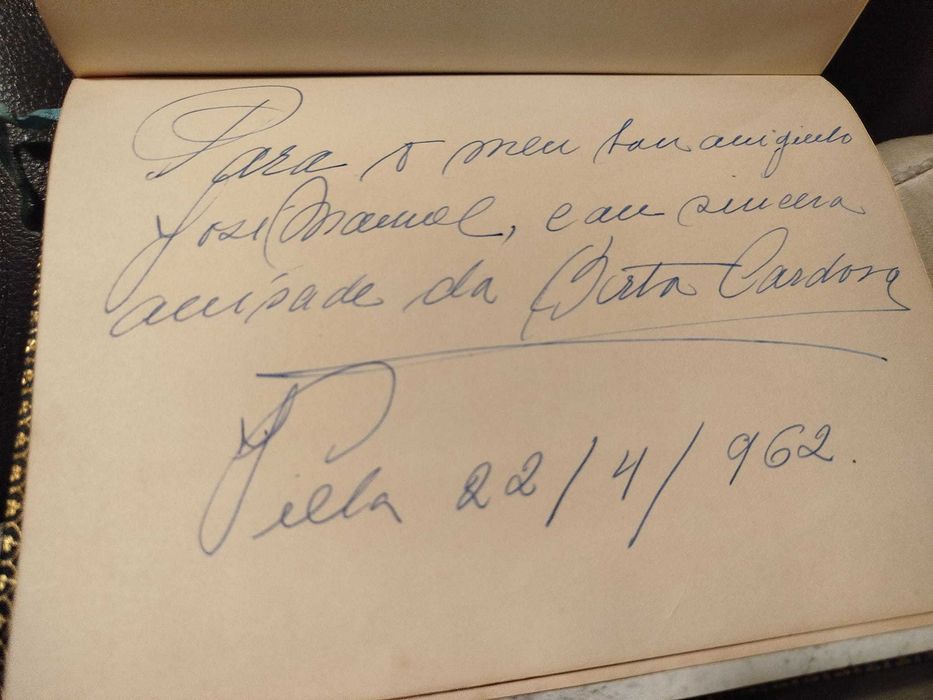 Para o meu bom amiguinho
José Manuel, com sincera
amizade da Berta Cardoso
22/4/962.